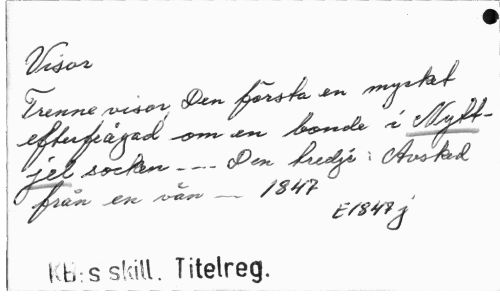 Visor
Trenne visor, Den första en mycket
efterfrågad om en bonde i Nytt-
jel socken --- Den tredje: Avsked
från en vän -- 1847
E1847j
KB:s skill. Titelreg.